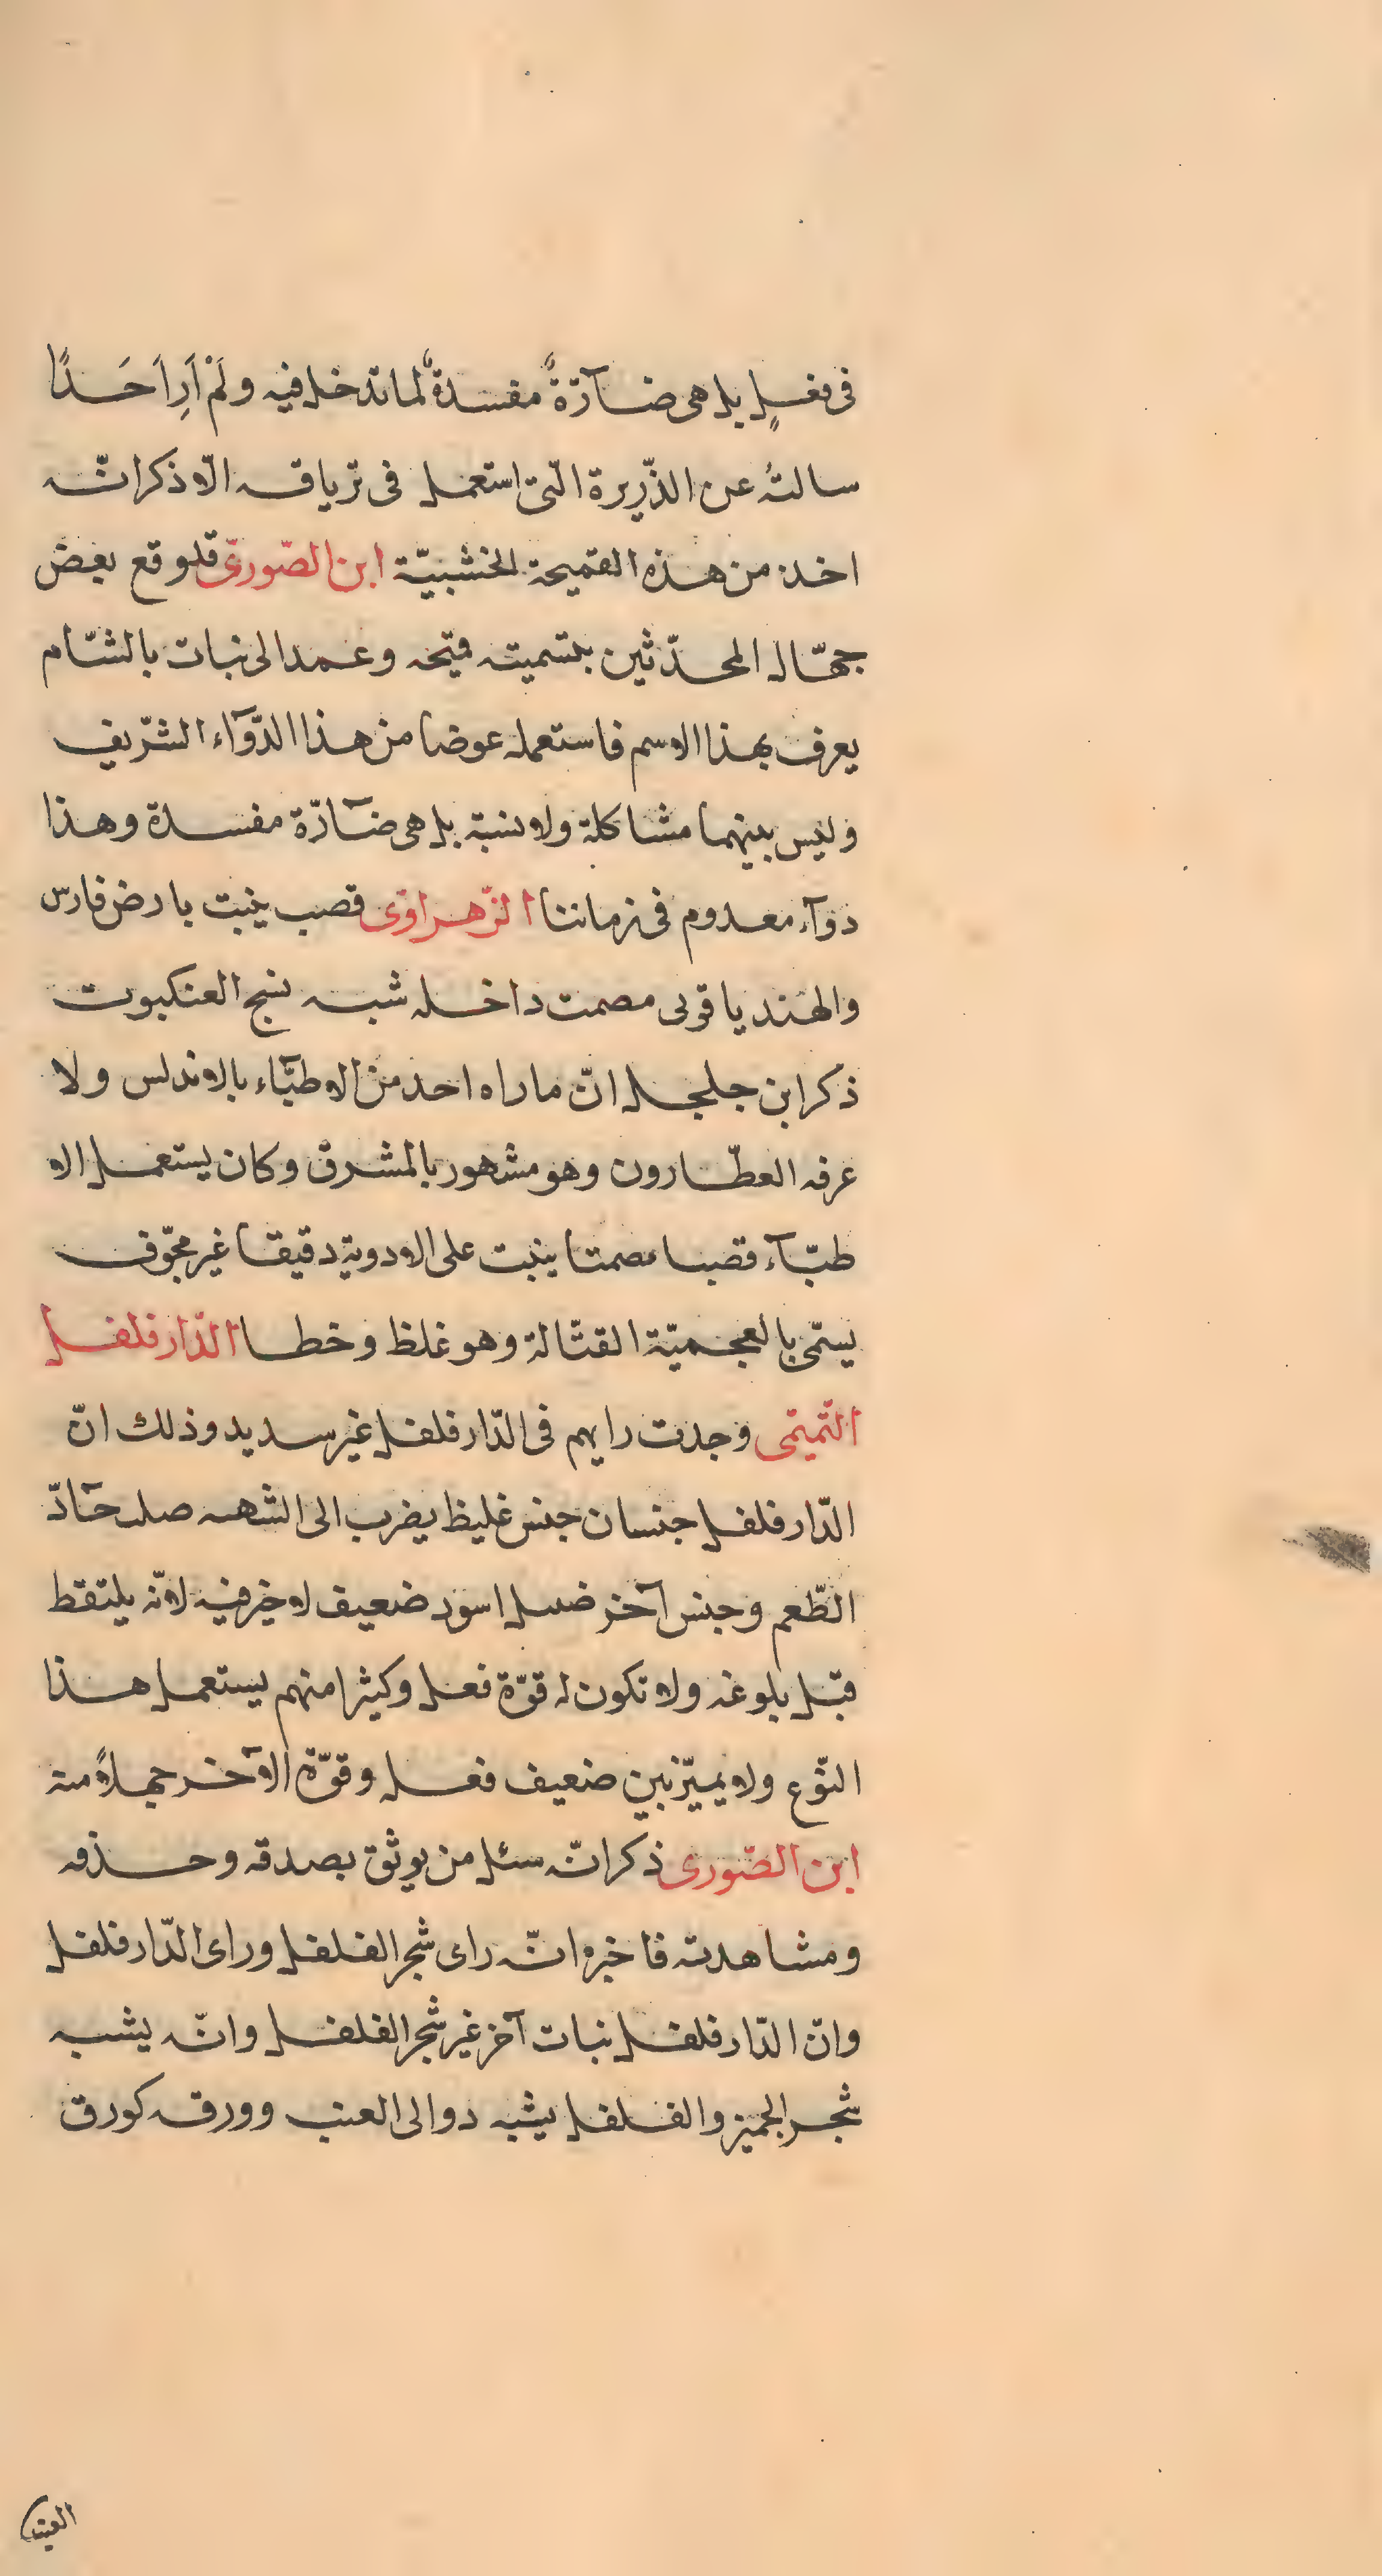 فى فعلٍ بل هى ضآرّةٌ مفسدةٌ لما تدخل فيه ولَمْ اَرَ اَحَدًا
سالتُه عن الذّريرة الّتى استعمل فى ترياقه الّا ذكر انّه
اخذ من هذه القميحة الخشبيّة ابن الصّورىّ قد وقع بعض
جهّال المحدّثين بتسميته قميحه وعمد الى نبات بالشّام
يعرف بهذا الاسم فاستعمله عوضا من هذا الدّوآء الشّريف
وليس بينهما مشاكلة ولا نسبة بل هى ضآرّة مفسدة وهذا
دوآء معدوم فى زماننا الزّهراوّى قصب ينبت بارض فارس
والهند ياقوتى مصمت داخله شبه نسج العنكبوت
ذكر ابن جلجل انّ ما راه احد من الاطبّآء بالاندلس ولا
عرفه العطّارون وهو مشهور بالمشرق وكان يستعمل الا
طبّآء قصبا مصمتا ينبت على الاودية دقيقا غير مجوّف
يسمّى بالعجميّة القتّالة وهو غلظ وخطا الدّار فلفل
التّميمّى وجدت رايهم فى الدّار فلفل غير سديد وذلك انّ
الدّار فلفل جنسان جنس غليظ يضرب الى الشّهبه صلب حآدّ
الطّعم وجنس آخر ضئيل اسود ضعيف لا خير فيه لانّه يلتقط
قبل بلوغه ولا تكون له قوّة فعل وكثيرا منهم يستعمل هذا
النّوع ولا يميّز بين ضعيف فعله وقوّة الآخر جهلاً منه
ابن الصّورى ذكر انّه سئل من يوثق بصدقه وحذقه
ومشاهدته فاخبره انّه راى شجر الفلفل وراى الدّار فلفل
وانّ الدّار فلفل نبات آخر غير شجر الفلفل وانّه يشبه
شجر الجميز والفلفل يشبه دوالى العنب وورقه كورق
العنب